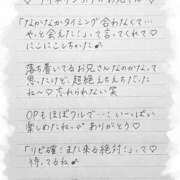 「なかなかタイミング合わなくて…
やっと会えた！」って言ってくれて♡
にこにこしちゃいた♪
落ち着いてるお兄さんなのかなって
思ったけど、超絶えちえちだった
ね〜♡忘れられない笑
OPもほぼフルで…！いーっぱい
楽しめたねっ♡ありがとう♡
「リピ確！また来る絶対！」って♡
待ってるね♪